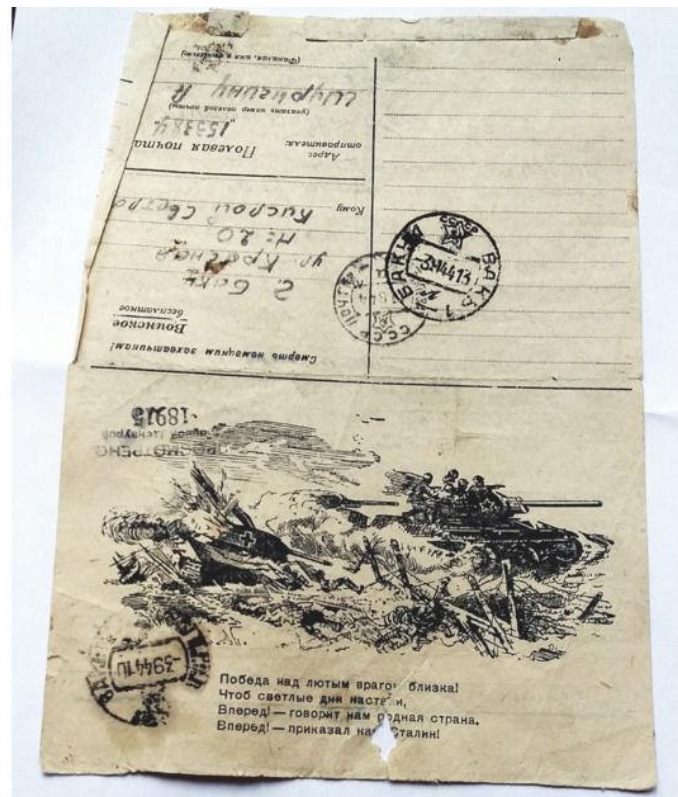 Смерть немецким захватчикам!
Воинское
бесплатное
г. Баку
ул. Красная
№ 20
Кому
Адрес отправителя: Полевая почта
(указать номер полевой почты)
Шуригину А
(Фамилия, имя и отчество)
СССР
БАКЫ 1 БАКУ
СССР ПОЧТА
ПРОСМОТРЕНО
Военной Цензурой
18915
-39441
Победа над лютым врагом близка!
Чтоб светлые дни настали,
Вперед! — говорит нам родная страна.
Вперед! — приказал нам Сталин!